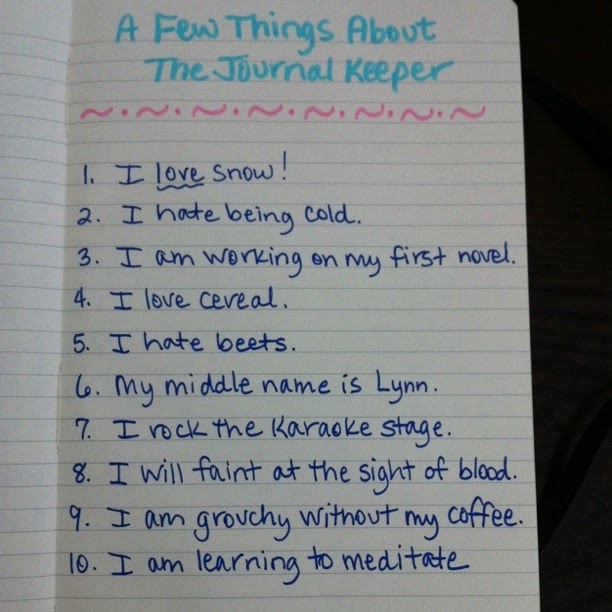 A Few Things About
The Journal Keeper
1. I love snow!
2. I hate being cold.
3. I am working on my first novel.
4. I love cereal.
5. I hate beets.
6. My middle name is Lynn.
7. I rock the Karaoke stage.
8. I will faint at the sight of blood.
9. I am grouchy without my coffee.
10. I am learning to meditate